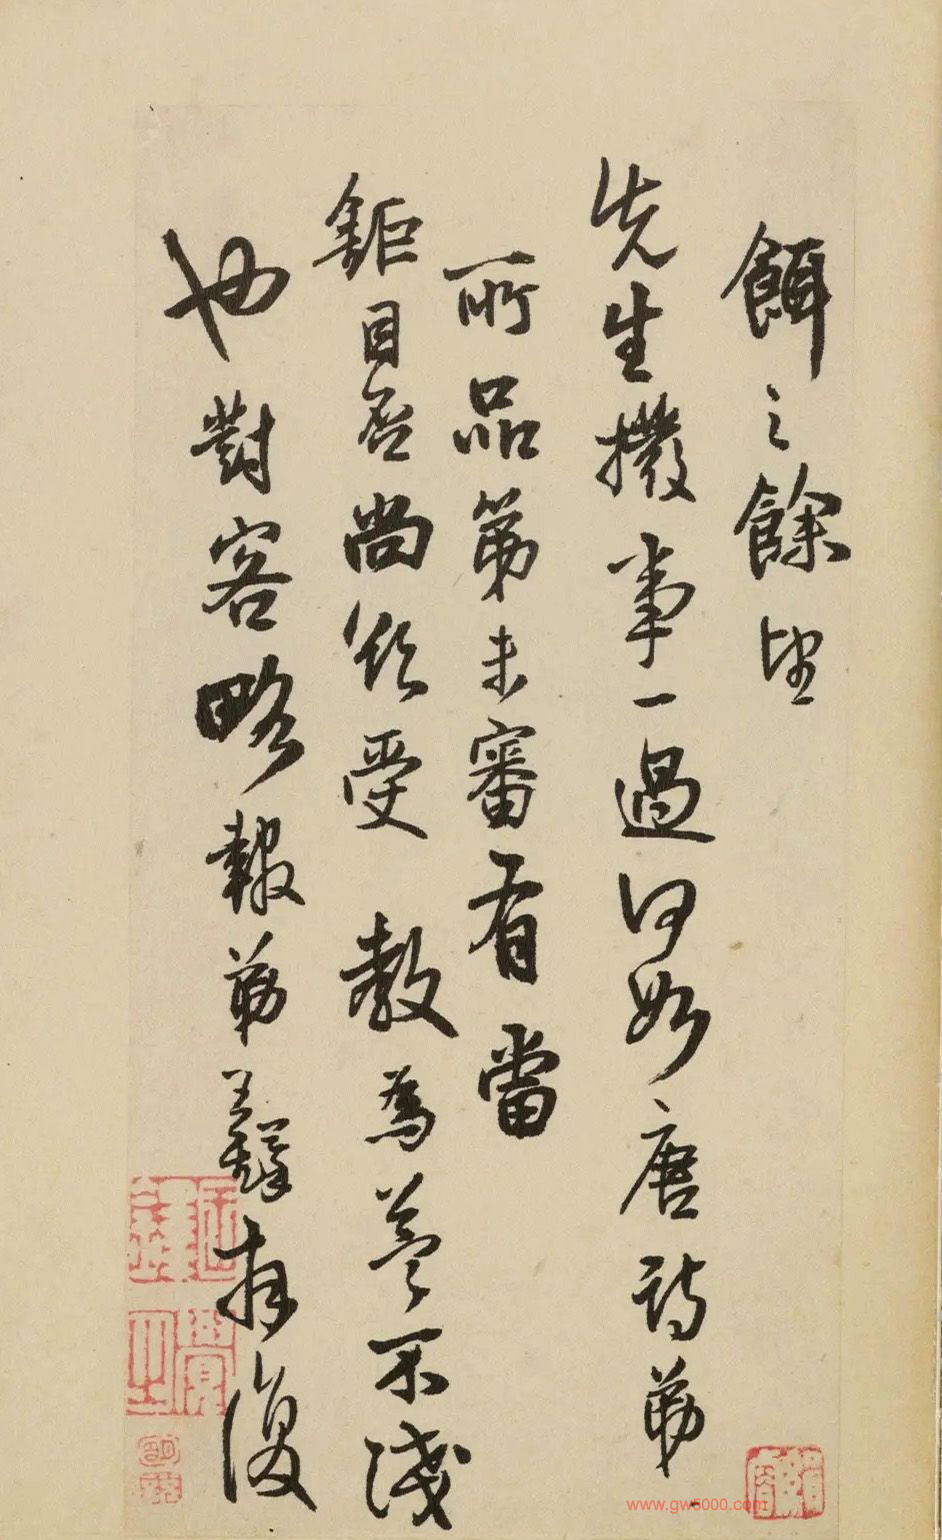 餌之餘望
先生撥事一過何如唐詩弟
所品第未審有當
鉅目否尚欲受 教為益不淺
也對客略報弟拜復
www.gw5000.com